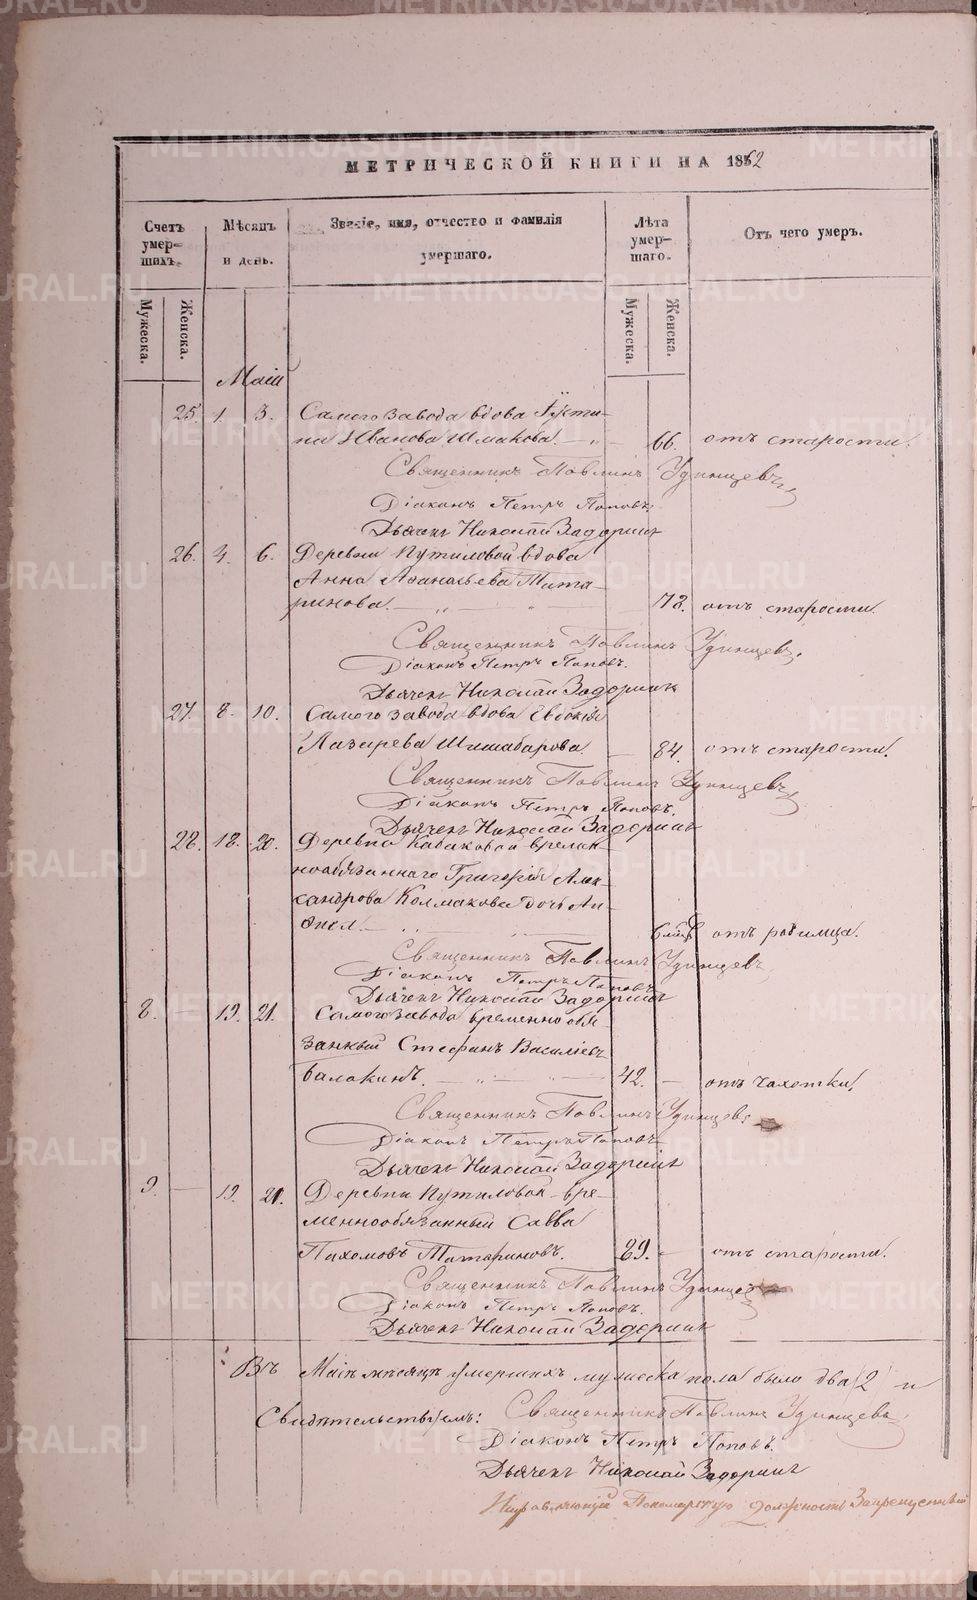 МЕТРИЧЕСКОЙ КНИГИ НА 1862
Счетъ умершихъ.
Мѣсяцъ и день.
Званіе, имя, отчество и фамилія умершаго.
Лѣта умершаго.
Отъ чего умеръ.
Мужеска.
Женска.
Мужеска.
Женска.
Маій
25. 1. 3. Самого завода вдова Іусти-
на Иванова Шмакова. 66. отъ старости.
Священникъ Павлинъ Удинцевъ
Діаконъ Петръ Поповъ.
Дьячекъ Николай Задоринъ
26. 4. 6. Деревни Путиловой вдова
Анна Аѳанасьева Мата-
ринова. 73. отъ старости.
Священникъ Павлинъ Удинцевъ.
Діаконъ Петръ Поповъ.
Дьячекъ Николай Задоринъ
27. 8. 10. Самого завода вдова Евдокія
Лазарева Шишабарова 84. отъ старости.
Священникъ Павлинъ Удинцевъ
Діаконъ Петръ Поповъ.
Дьячекъ Николай Задоринъ
28. 18. 20. Деревни Кабаковой времен-
нообязаннаго Григорія Алек-
сандрова Колмакова дочь
6 отъ родимца.
Священникъ Павлинъ Удинцевъ
Діаконъ Петръ Поповъ
Дьячекъ Николай Задоринъ
8. 19. 21. Самого завода временнообя-
занный Стефанъ Василіевъ
Балакинъ. 42. отъ чахотки.
Священникъ Павлинъ Удинцевъ
Діаконъ Петръ Поповъ
Дьячекъ Николай Задоринъ
9. 19. 21. Деревни Путиловой вре-
меннообязанный Савва
Пахомовъ Матариновъ. 89. отъ старости.
Священникъ Павлинъ Удинцевъ
Діаконъ Петръ Поповъ.
Дьячекъ Николай Задоринъ
Въ Маіѣ мѣсяцѣ умершихъ мужеска пола было два (2) и
Свидѣтельствуемъ: Священникъ Павлинъ Удинцевъ
Діаконъ Петръ Поповъ.
Дьячекъ Николай Задоринъ
Пономарскую должность
METRIKI.GASO-URAL.RU